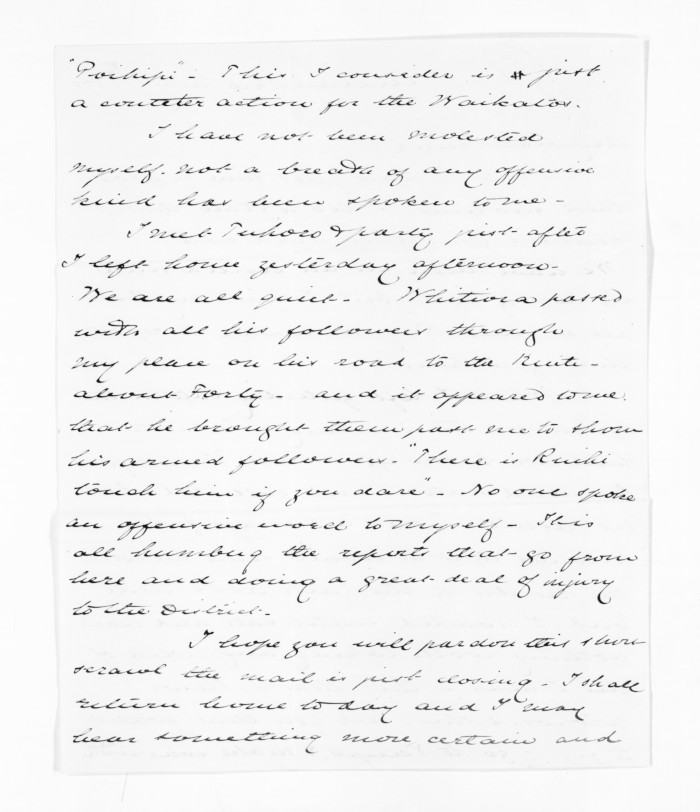 "Poihipi" - This I consider is just
a counter action for the Waikatos.
I have not been molested
myself. not a breath of any offensive
kind has been spoken to me -
I met Tuhoro & party just after
I left home yesterday afternoon -
We are all quiet - Whitiora passed
with all his followers through
my place on his road to the
about Forty - and it appeared to me
that he brought them past me to show
his armed followers - "There is
touch him if you dare" - No one spoke
an offensive word to myself - It is
all humbug the reports that go from
here and doing a great deal of injury
to the District -
I hope you will pardon this short
scrawl the mail is just closing - I shall
return home today and I may
hear something more certain and